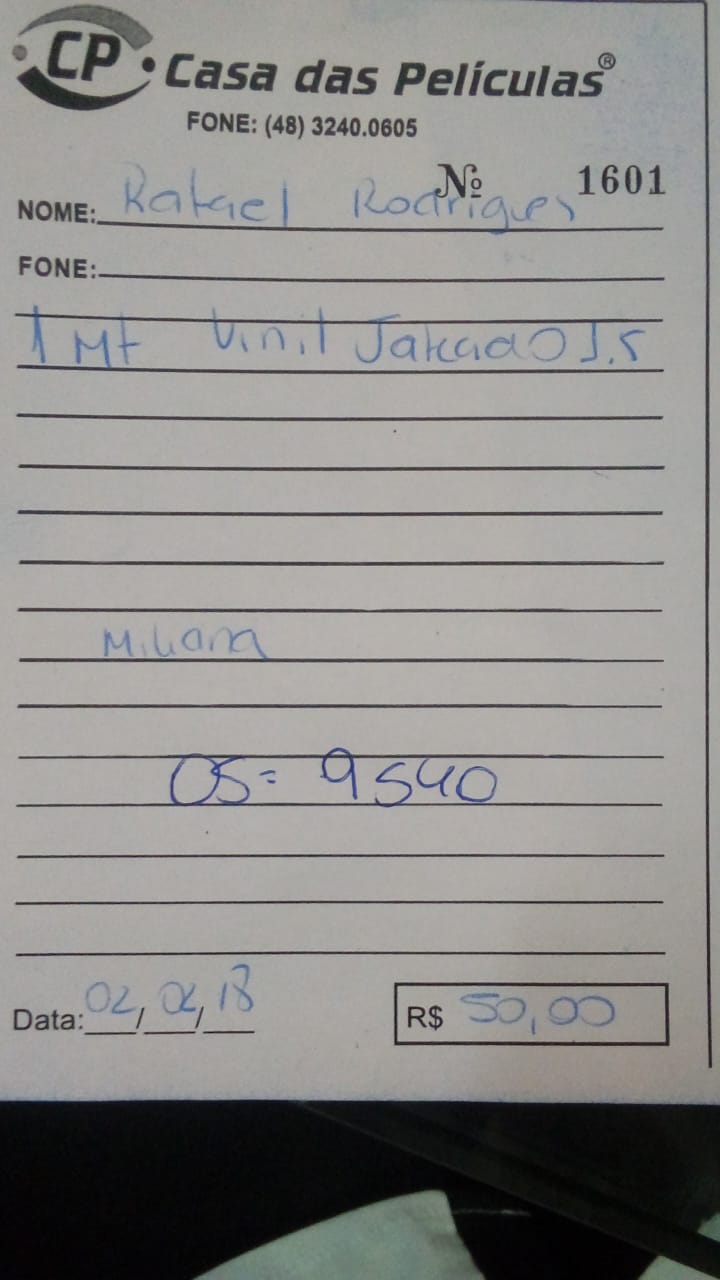 CP Casa das Películas®
FONE: (48) 3240.0605
Nº 1601
NOME: Rafael Rodrigues
FONE:
1 Mt Vinil Jateado 1.5
OS = 9540
Data: 02/02/18
R$ 50,00